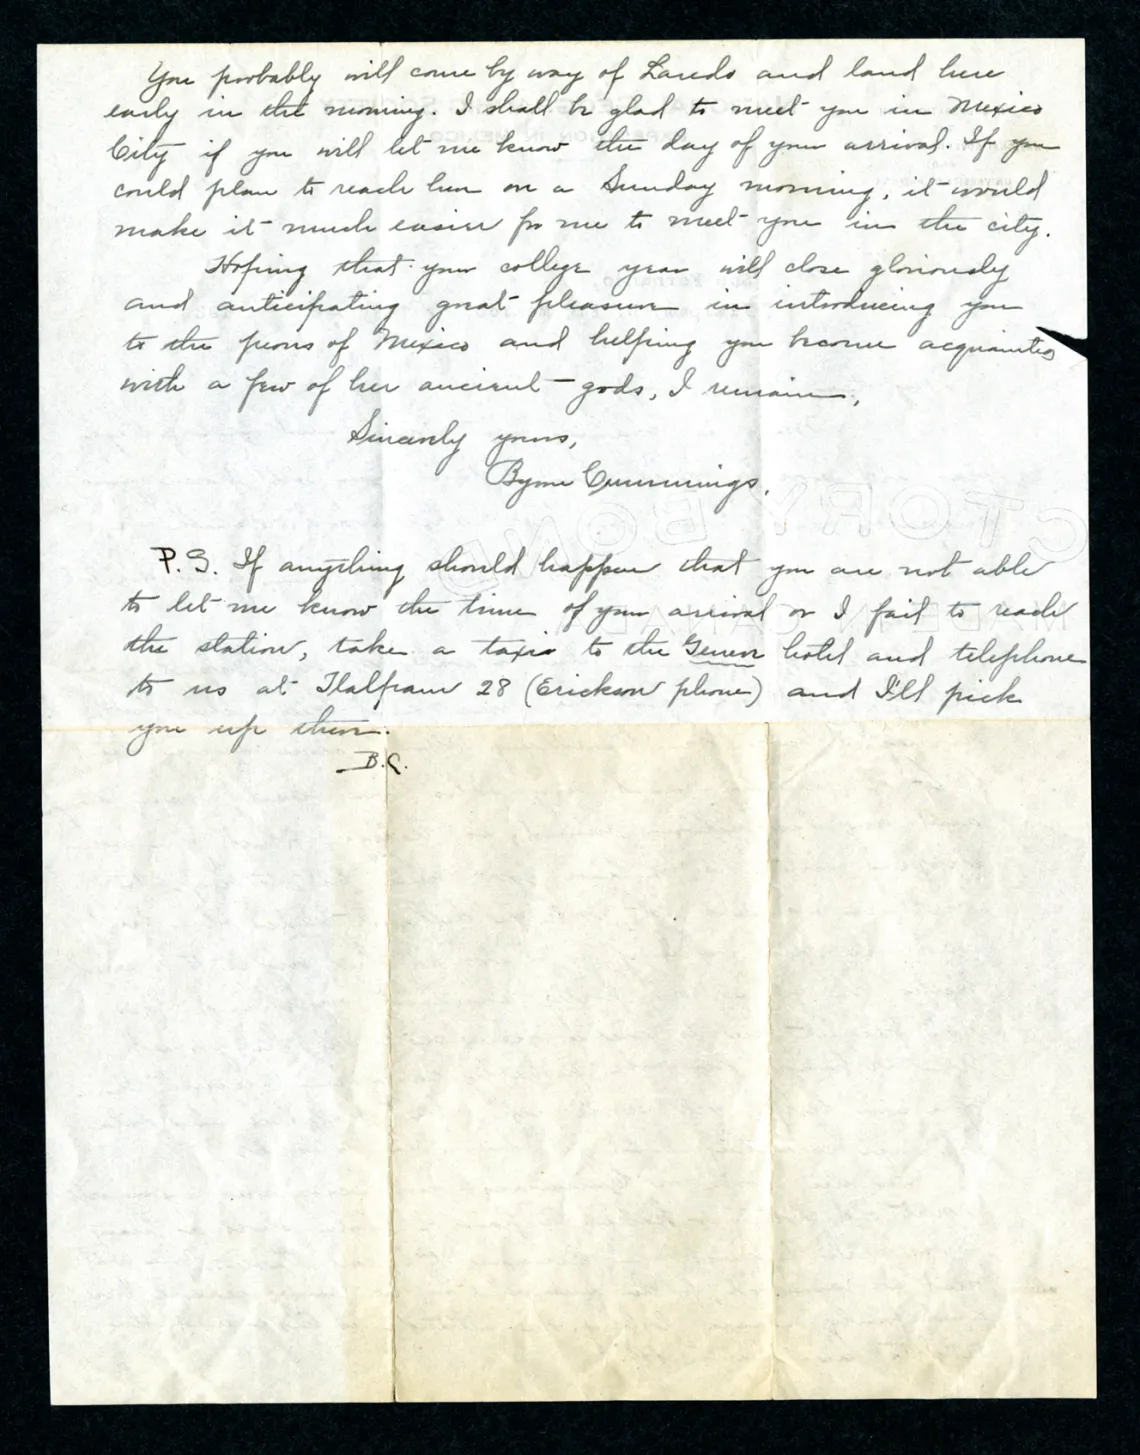 You probably will come by way of Laredo and land here
early in the morning. I shall be glad to meet you in Mexico
City if you will let me know the day of your arrival. If you
could plan to reach here on a Sunday morning, it would
make it much easier for me to meet you in the city.
Hoping that your college year will close gloriously
and anticipating great pleasure in introducing you
to the peons of Mexico and helping you become acquainted
with a few of her ancient gods, I remain,
Sincerely yours,
Byron Cummings.
P.S. If anything should happen that you are not able
to let me know the time of your arrival or I fail to reach
the station, take a taxi to the Geneve hotel and telephone
to us at Tlalpam 28 (Erickson phone) and I'll pick
you up there.
B.C.